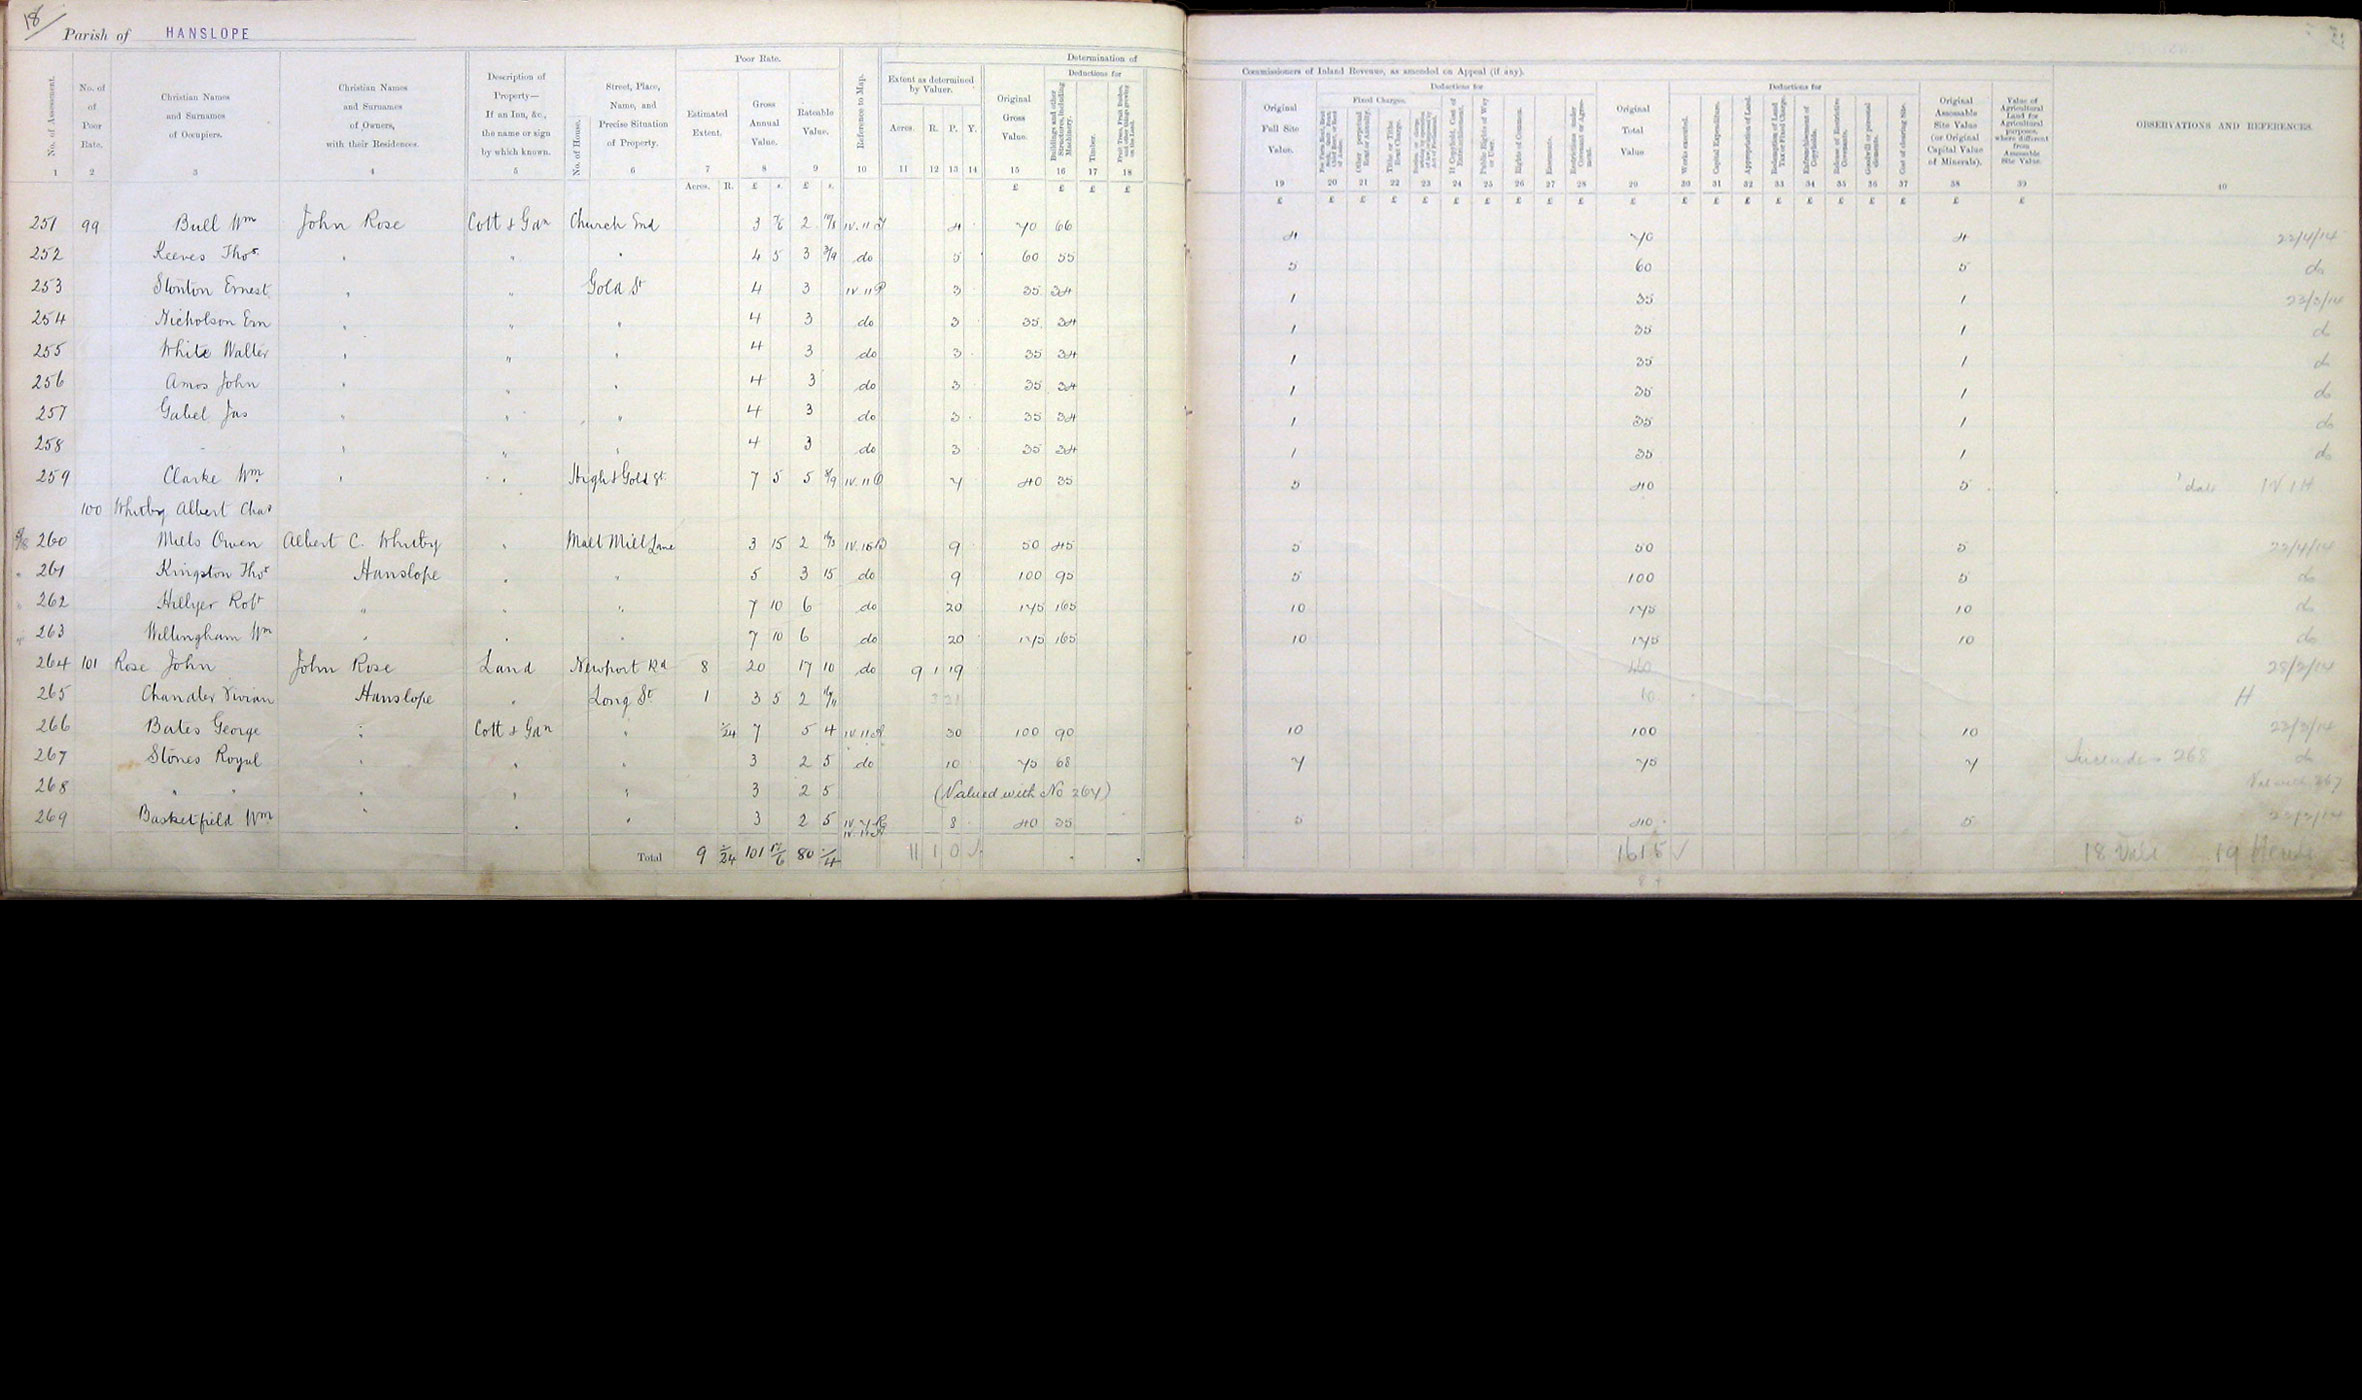 18
Parish of HANSLOPE
Poor Rate.
Determination of
Commissioners of Inland Revenue, as amended on Appeal (if any).
No. of Assessment. 1
No. of Poor Rate. 2
Christian Names and Surnames of Occupiers. 3
Christian Names and Surnames of Owners, with their Residences. 4
Description of Property— If an Inn, &c., the name or sign by which known. 5
No. of House.
Street, Place, Name, and Precise Situation of Property. 6
Estimated Extent. 7 Acres. R.
Gross Annual Value. 8 £ s.
Rateable Value. 9 £ s.
Reference to Map. 10
Extent as determined by Valuer. Acres. R. P. Y. 11 12 13 14
Original Gross Value. 15 £
Deductions for
Buildings and other Structures, including Machinery. 16 £
Timber. 17 £
Fruit Trees, Fruit Bushes, and other things growing on the Land. 18 £
Original Full Site Value. 19 £
Deductions for
Fixed Charges.
20 £
Other perpetual Rent or Annuity. 21 £
Tithe or Tithe Rent Charge. 22 £
23 £
If Copyhold, Cost of Enfranchisement. 24 £
Public Rights of Way or User. 25 £
Rights of Common. 26 £
Easements. 27 £
Restrictions under Covenant or Agreement. 28 £
Original Total Value 29 £
Deductions for
Works executed. 30 £
Capital Expenditure. 31 £
Appropriation of Land. 32 £
Redemption of Land Tax or Fixed Charge. 33 £
Enfranchisement of Copyholds. 34 £
Release of Restrictive Covenants. 35 £
Goodwill or personal elements. 36 £
Cost of clearing Site. 37 £
Original Assessable Site Value (or Original Capital Value of Minerals). 38 £
Value of Agricultural Land for Agricultural purposes, where different from Assessable Site Value. 39 £
OBSERVATIONS AND REFERENCES. 40
251 99 Bull Wm John Rose Cott & Gdn Church End 3 2 IV.11 4 70 66 4 70 4 22/4/14
252 Reeves Thos " " " 4 5 3 3/9 do 5 60 55 5 60 5 do
253 Stonton Ernest " " Gold St 4 3 IV 11 P 3 35 34 1 35 1 23/3/14
254 Nicholson Ern " " " 4 3 do 3 35 34 1 35 1 do
255 White Walter " " " 4 3 do 3 35 34 1 35 1 do
256 Amos John " " " 4 3 do 3 35 34 1 35 1 do
257 Gabel Jas " " " 4 3 do 3 35 34 1 35 1 do
258 - " " " 4 3 do 3 35 34 1 35 1 do
259 Clarke Wm " " High & Gold St 7 5 5 8/9 IV.11 O 7 40 35 5 40 5
100 Whitby Albert Chas
260 Mills Owen Albert C. Whitby " Malt Mill Lane 3 15 2 IV.15 B 9 50 45 5 50 5 22/4/14
261 Kingston Thos Hanslope " " 5 3 15 do 9 100 95 5 100 5 do
262 Hillyer Robt " " " 7 10 6 do 20 175 165 10 175 10 do
263 Willingham Wm " " " 7 10 6 do 20 175 165 10 175 10 do
264 101 Rose John John Rose Land Newport Rd 8 20 17 10 do 9 1 19 28/2/14
265 Chandler Vivian Hanslope " Long St 1 3 5 2 10 H
266 Bates George " Cott & Gdn " 7 5 4 30 100 90 10 100 10 23/3/14
267 Stones Royal " " " 3 2 5 do 10 75 68 7 75 7 Includes 268 do
268 " " " " " 3 2 5 (Valued with No 267)
269 Basketfield Wm " " " 3 2 5 8 40 35 5 40 5 23/3/14
Total 9 101 80 11 1 0 1615 18